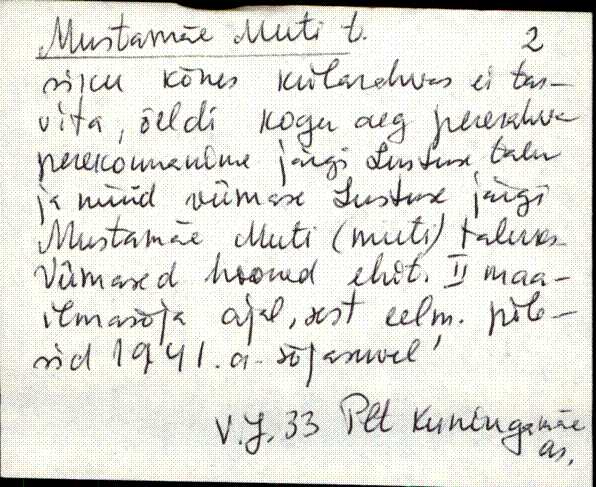 Mustamäe Muti t. 2
siku kõnes külarahvas ei tar-
vita, öeldi kogu aeg pererahva
perekonnanime järgi Lustuse talu
ja nüüd viimase Lustuse järgi
Mustamäe Muti (muti) taluks
Viimased hooned ehit. II maa-
ilmasõja ajal, sest eelm. põle-
sid 1941. a. sõjasuvel
V.J. 33 Plt Kuningamäe
as.